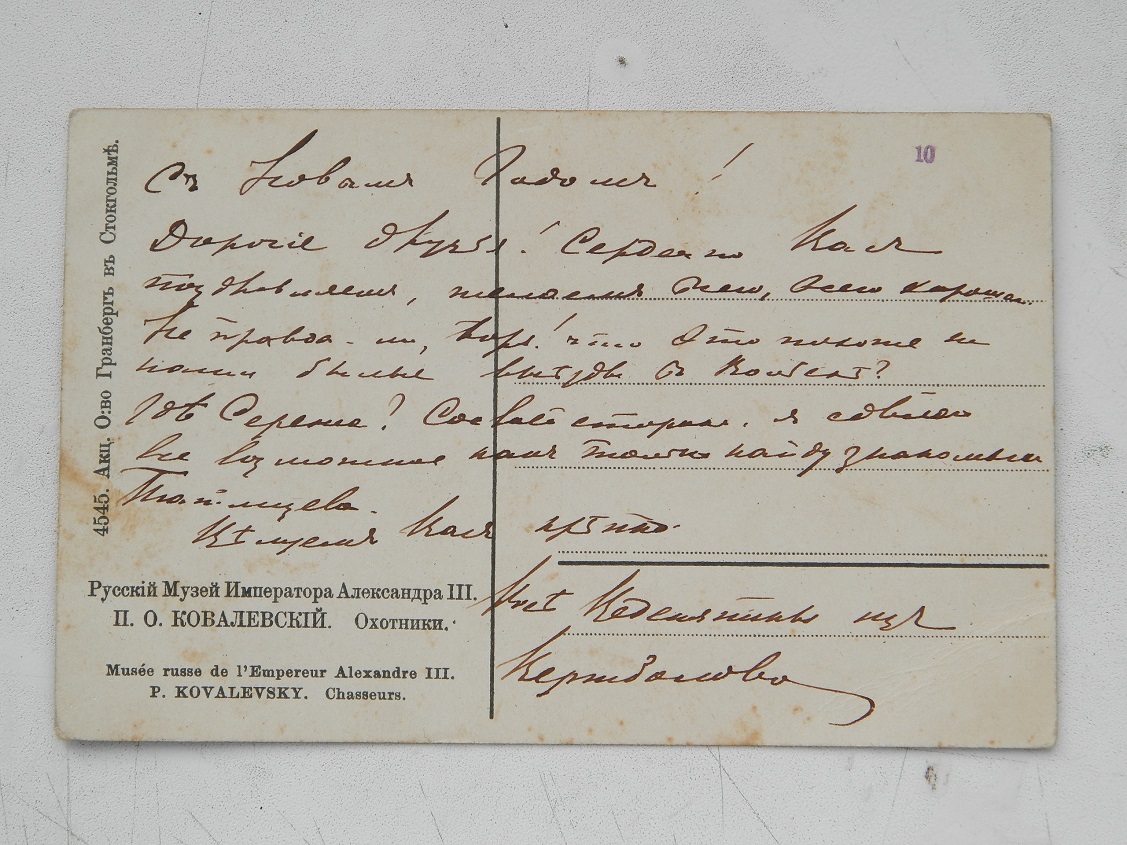 10
Съ Новымъ Годомъ!
Дорогіе друзья! Сердечно Васъ
поздравляемъ, желаемъ всего, всего хорошаго.
Не правда-ли, что это похоже на
наши былые выѣзды въ
Гдѣ Сережа? Со своей стороны я сдѣлаю
все возможное какъ только найду знакомыхъ
Татищева.
Цѣлуемъ Васъ крѣпко.
Всѣ изъ
4545. Акц. О:во Гранбергъ въ Стокгольмѣ.
Русскій Музей Императора Александра III.
П. О. КОВАЛЕВСКІЙ. Охотники.
Musée russe de l'Empereur Alexandre III.
P. KOVALEVSKY. Chasseurs.